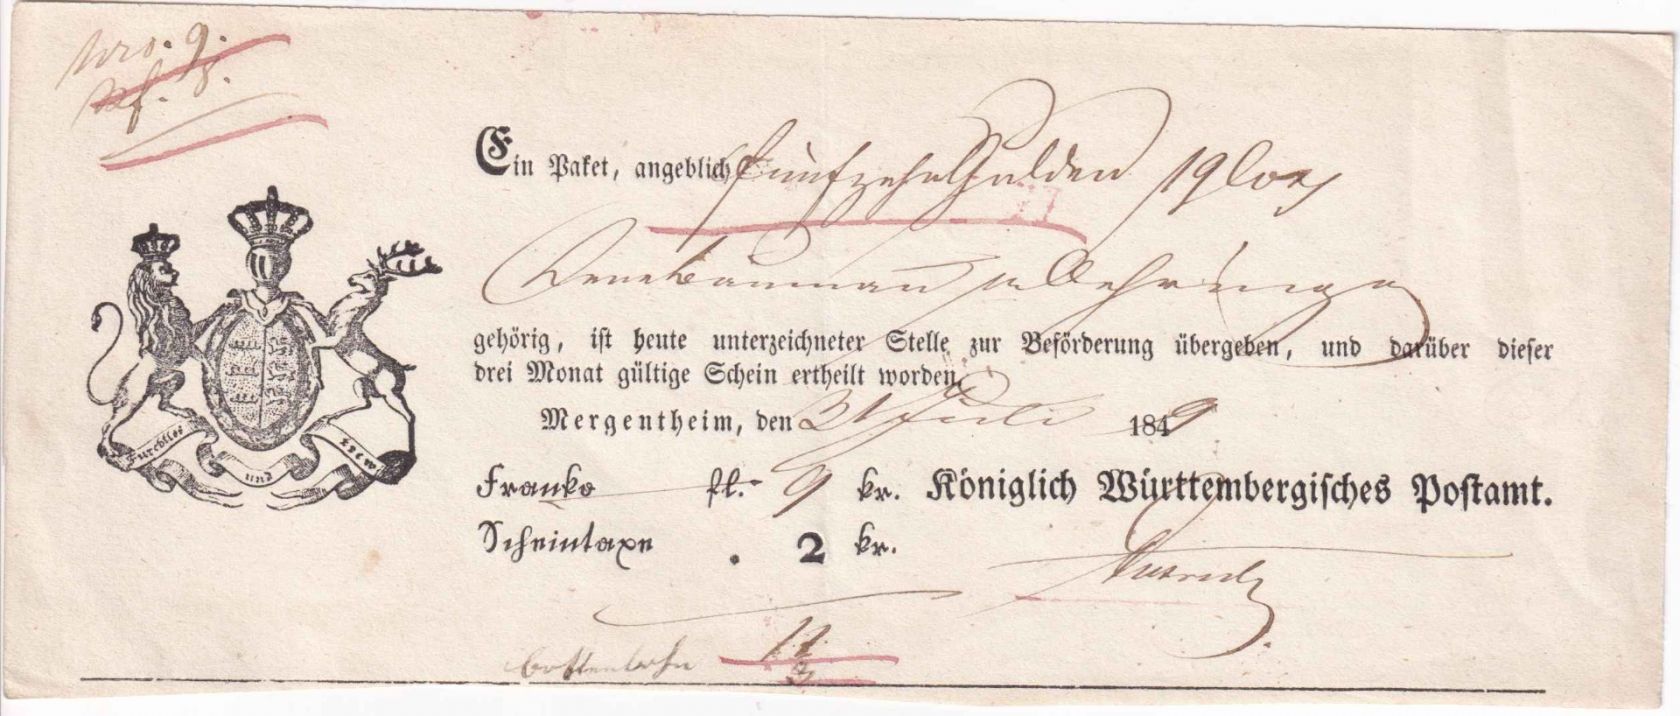 Nro. 9.
Ein Paket, angeblich fünfzehn Gulden 19 Lot
in Oehringen
gehörig, ist heute unterzeichneter Stelle zur Beförderung übergeben, und darüber dieser
drei Monat gültige Schein ertheilt worden.
Mergentheim, den 31 Juli 1849
Franko fl. - 9 kr. Königlich Württembergisches Postamt.
Scheintaxe . 2 kr.
Furchtlos und trew
Bottenlohn